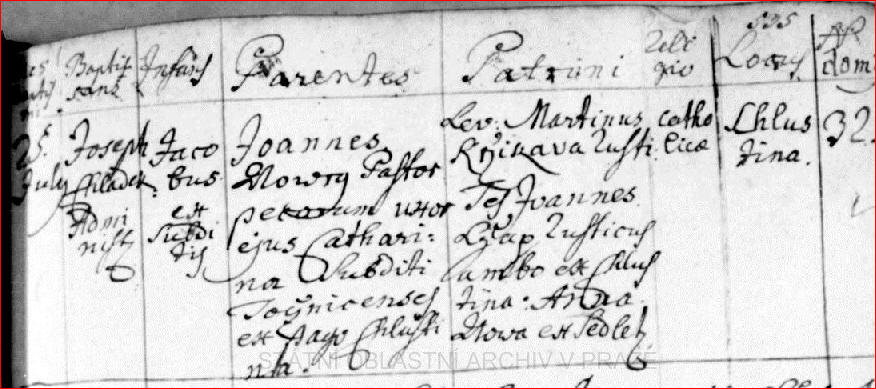 Baptisans Infans Parentes Patrini Religio Locus No domus
25. July
Joseph
Chladek
Administ
Jacobus
ex
Subditis
Joannes
Nowey Pastor
pecorum uxor
ejus Cathari:
na Subditi
Toẏnicenses
ex Pago Chlusti
nta.
Lev: Martinus
Rusti
Tes Joannes
Rusticus
ambo ex Chlus
tina. Anna
Nowa ex Sedletz
catho
licæ
Chlus
tina.
32.
STÁTNÍ OBLASTNÍ ARCHIV V PRAZE